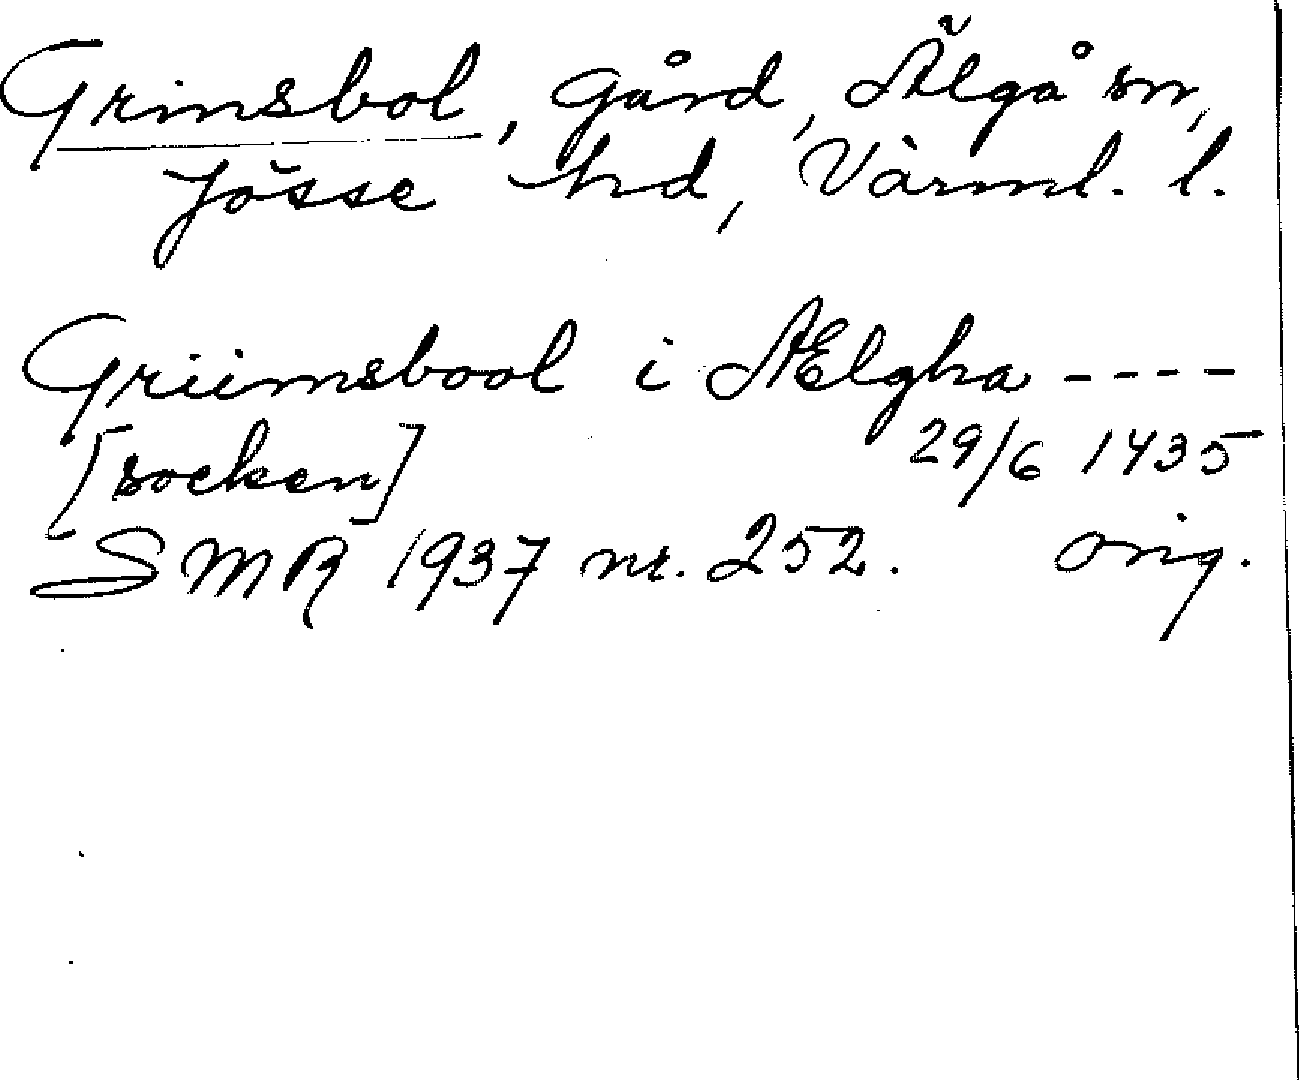 Grinsbol, gård, Älgå sn,
Jösse hd, Värml. l.
Griimsbool i Ælgha ----
[socken] 29/6 1435
SMR 1937 nr. 252. orig.